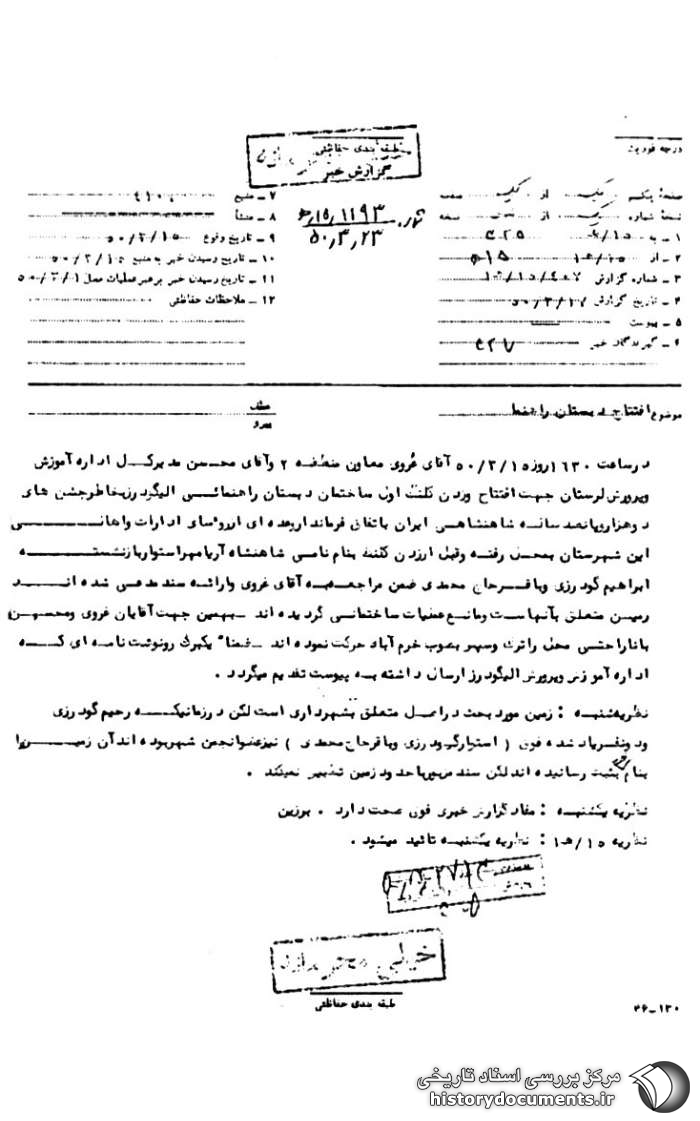 طبقه بندی حفاظتی
گزارش خبر
درجه فوریت
صفحهٔ یکم از یک صفحه
نسخهٔ شماره یک از نسخه
۱ – به
۲ – از ۱۵/ه‍ ۱
۳ – شماره گزارش
۴ – تاریخ گزارش ۵۰/۳/۱۷
۵ – پیوست
۶ – گیرندگان خبر
۷ – منبع
۸ – منشأ
۹ – تاریخ وقوع ۵۰/۳/۱۵
۱۰ – تاریخ رسیدن خبر به منبع ۵۰/۳/۱۵
۱۱ – تاریخ رسیدن خبر برهبر عملیات محل
۱۲ – ملاحظات حفاظتی
۵۰،۳،۲۳
موضوع افتتاح دبستان راهنما
عطف
پیرو
در ساعت ۱۶۳۰ روز ۵۰/۳/۱۵ آقای غروی معاون منطقه ۲ و آقای محسن مدیرکل اداره آموزش
وپرورش لرستان جهت افتتاح وزدن کلنگ اول ساختمان دبستان راهنمائی الیگودرز بخاطر جشن های
دوهزاروپانصدساله شاهنشاهی ایران باتفاق فرماندار وعده ای از روسای ادارات و اهالی
این شهرستان بمحل رفته وقبل از زدن کلنگ بنام نامی شاهنشاه آریامهر استوار بازنشسته
ابراهیم گودرزی وباقر حاج محمدی ضمن مراجعه به آقای غروی وارائه سند مدعی شده اند
زمین متعلق بآنهاست ومانع عملیات ساختمانی گردیده اند – بهمین جهت آقایان غروی ومحسن
باناراحتی محل راترک وسپس بصوب خرم آباد حرکت نموده اند – ضمناً یکبرگ رونوشت نامه ای که
اداره آموزش وپرورش الیگودرز ارسال داشته به پیوست تقدیم میگردد .
نظریه شنبه : زمین مورد بحث دراصل متعلق بشهرداری است لکن در زمانیکه رحیم گودرزی
ودونفر یاد شده فوق ( استوار گودرزی وباقر حاج محمدی ) نیز عضوانجمن شهر بوده اند آن زمین را
بنام ثبت رسانیده اند لکن سند مزبور با حدود زمین تطبیق نمیکند .
نظریه یکشنبه : مفاد گزارش خبری فوق صحت دارد . برزین
نظریه ۱۵/ه‍ ۱ : نظریه یکشنبه تائید میشود .
خیلی محرمانه
طبقه بندی حفاظتی
۳۶–۱۳۰
مرکز بررسی اسناد تاریخی
historydocuments.ir